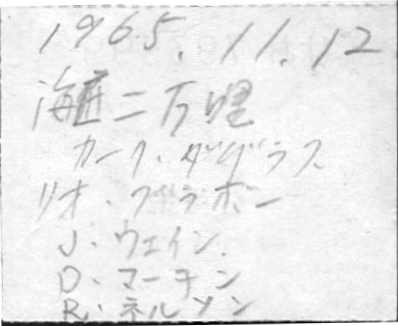 1965.11.12
海底二万哩
カーク・ダグラス
リオ・ブラボー
J・ウェイン.
D・マーチン
R・ネルソン